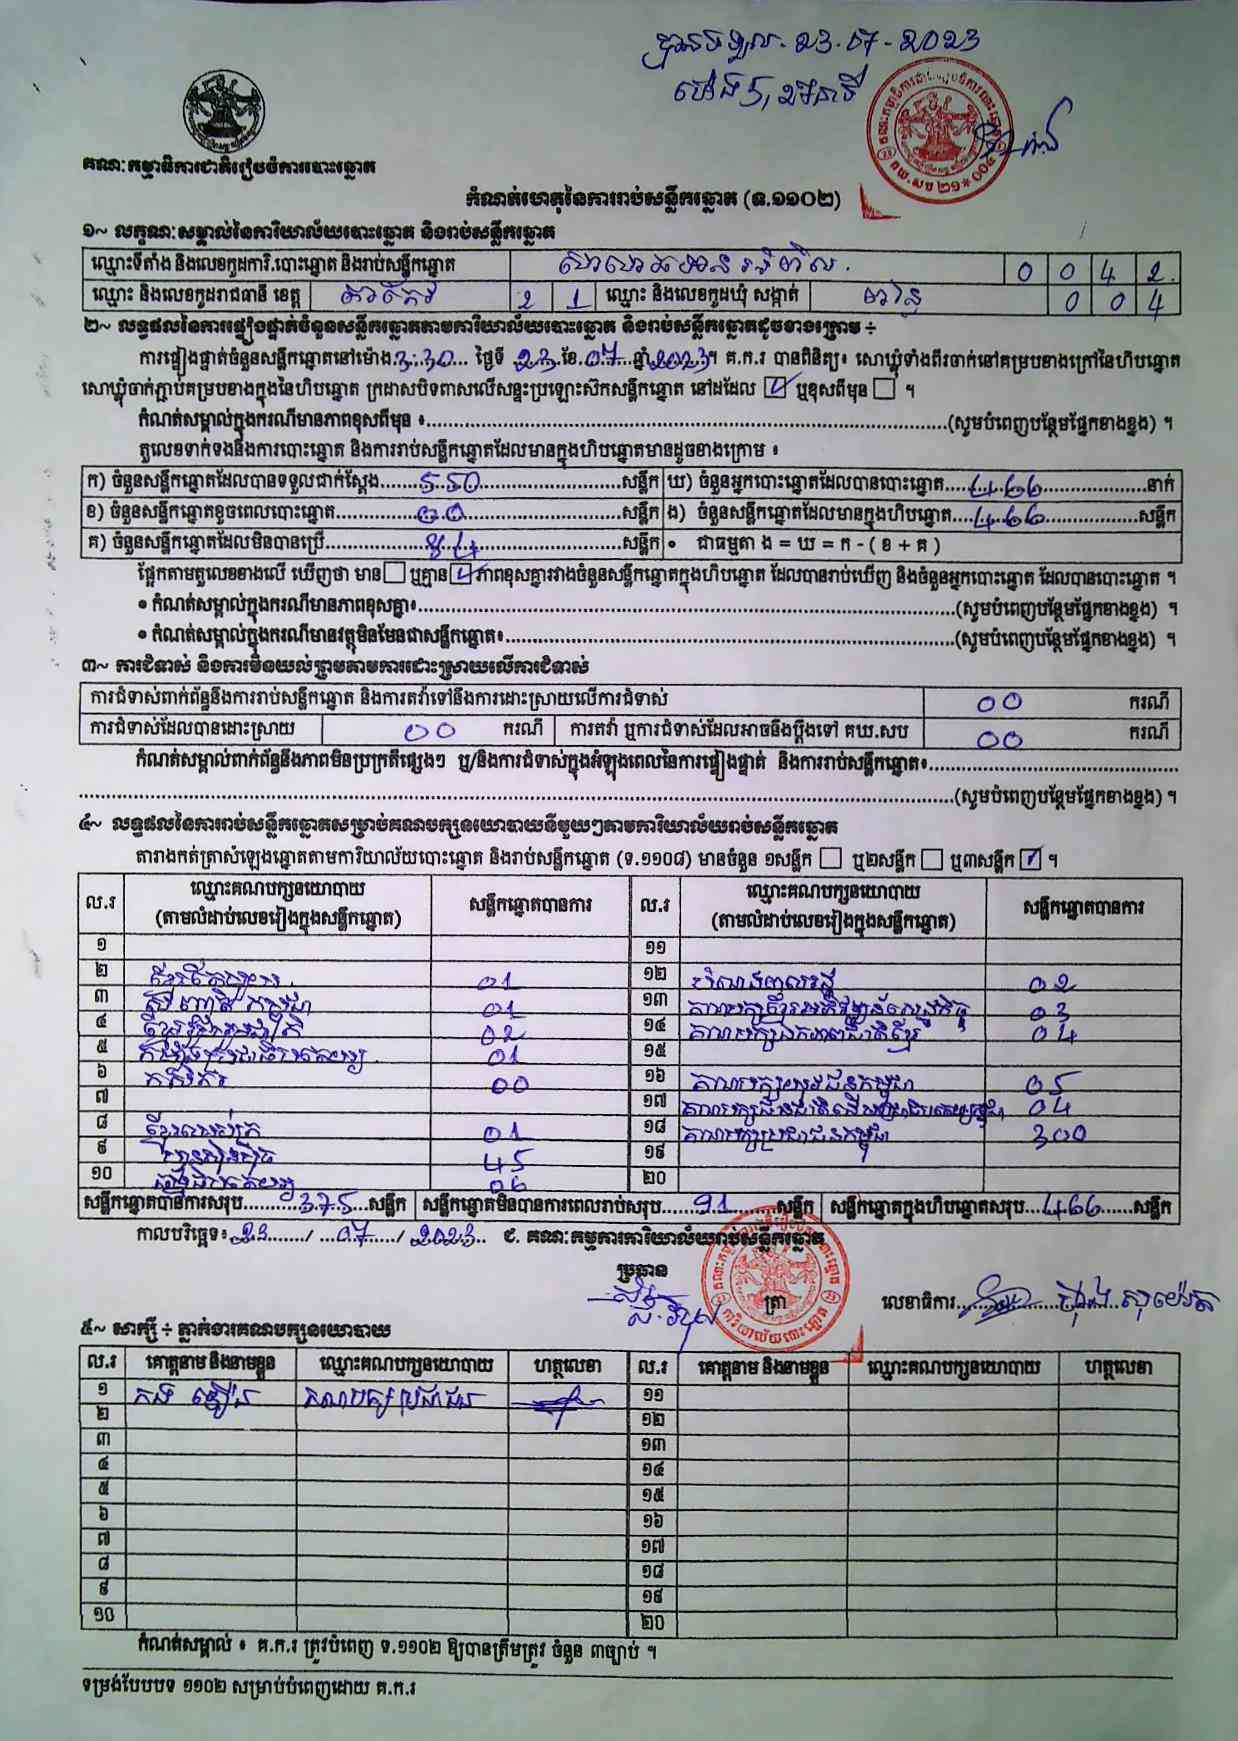 បានទទួល. 23-07-2023
គណៈកម្មាធិការជាតិរៀបចំការបោះឆ្នោត
កំណត់ហេតុនៃការរាប់សន្លឹកឆ្នោត (ទ.១១០២)
១~ លក្ខណៈសម្គាល់នៃការិយាល័យបោះឆ្នោត និងរាប់សន្លឹកឆ្នោត
ឈ្មោះទីតាំង និងលេខកូដការិ.បោះឆ្នោត និងរាប់សន្លឹកឆ្នោត 0 0 4 2
ឈ្មោះ និងលេខកូដរាជធានី ខេត្ត តាកែវ 2 1 ឈ្មោះ និងលេខកូដឃុំ សង្កាត់ 0 0 4
២~ លទ្ធផលនៃការផ្ទៀងផ្ទាត់ចំនួនសន្លឹកឆ្នោតតាមការិយាល័យបោះឆ្នោត និងរាប់សន្លឹកឆ្នោតដូចខាងក្រោម ÷
ការផ្ទៀងផ្ទាត់ចំនួនសន្លឹកឆ្នោតនៅម៉ោង 3:30 ថ្ងៃទី 23 ខែ 07 ឆ្នាំ 2023។ គ.ក.រ បានពិនិត្យ៖ សោឃ្លុំទាំងពីរចាក់នៅគម្របខាងក្រៅនៃហិបឆ្នោត
សោឃ្លុំចាក់ភ្ជាប់គម្របខាងក្នុងនៃហិបឆ្នោត ក្រដាសបិទពាសលើសន្ទះប្រឡោះស៊កសន្លឹកឆ្នោត នៅដដែល ☑ ឬខុសពីមុន ☐ ។
កំណត់សម្គាល់ក្នុងករណីមានភាពខុសពីមុន ៖........(សូមបំពេញបន្ថែមផ្នែកខាងខ្នង) ។
តួលេខទាក់ទងនឹងការបោះឆ្នោត និងការរាប់សន្លឹកឆ្នោតដែលមានក្នុងហិបឆ្នោតមានដូចខាងក្រោម ៖
ក) ចំនួនសន្លឹកឆ្នោតដែលបានទទួលជាក់ស្តែង....550....សន្លឹក ឃ) ចំនួនអ្នកបោះឆ្នោតដែលបានបោះឆ្នោត....466....នាក់
ខ) ចំនួនសន្លឹកឆ្នោតខូចពេលបោះឆ្នោត....00....សន្លឹក ង) ចំនួនសន្លឹកឆ្នោតដែលមានក្នុងហិបឆ្នោត....466....សន្លឹក
គ) ចំនួនសន្លឹកឆ្នោតដែលមិនបានប្រើ....84....សន្លឹក ● ជាធម្មតា ង = ឃ = ក - ( ខ + គ )
ផ្អែកតាមតួលេខខាងលើ ឃើញថា មាន ☐ ឬគ្មាន ☑ ភាពខុសគ្នារវាងចំនួនសន្លឹកឆ្នោតក្នុងហិបឆ្នោត ដែលបានរាប់ឃើញ និងចំនួនអ្នកបោះឆ្នោត ដែលបានបោះឆ្នោត ។
● កំណត់សម្គាល់ក្នុងករណីមានភាពខុសគ្នា៖........(សូមបំពេញបន្ថែមផ្នែកខាងខ្នង) ។
● កំណត់សម្គាល់ក្នុងករណីមានវត្ថុមិនមែនជាសន្លឹកឆ្នោត៖........(សូមបំពេញបន្ថែមផ្នែកខាងខ្នង) ។
៣~ ការជំទាស់ និងការមិនយល់ព្រមតាមការដោះស្រាយលើការជំទាស់
ការជំទាស់ពាក់ព័ន្ធនឹងការរាប់សន្លឹកឆ្នោត និងការតវ៉ាទៅនឹងការដោះស្រាយលើការជំទាស់ 00 ករណី
ការជំទាស់ដែលបានដោះស្រាយ 00 ករណី ការតវ៉ា ឬការជំទាស់ដែលអាចនឹងប្តឹងទៅ គឃ.សប 00 ករណី
កំណត់សម្គាល់ពាក់ព័ន្ធនឹងភាពមិនប្រក្រតីផ្សេងៗ ឬ/និងការជំទាស់ក្នុងអំឡុងពេលនៃការផ្ទៀងផ្ទាត់ និងការរាប់សន្លឹកឆ្នោត៖........
........(សូមបំពេញបន្ថែមផ្នែកខាងខ្នង) ។
៤~ លទ្ធផលនៃការរាប់សន្លឹកឆ្នោតសម្រាប់គណបក្សនយោបាយនីមួយៗតាមការិយាល័យរាប់សន្លឹកឆ្នោត
តារាងកត់ត្រាសំឡេងឆ្នោតតាមការិយាល័យបោះឆ្នោត និងរាប់សន្លឹកឆ្នោត (ទ.១១០៨) មានចំនួន ១សន្លឹក ☐ ឬ២សន្លឹក ☐ ឬ៣សន្លឹក ☑ ។
ល.រ ឈ្មោះគណបក្សនយោបាយ (តាមលំដាប់លេខរៀងក្នុងសន្លឹកឆ្នោត) សន្លឹកឆ្នោតបានការ ល.រ ឈ្មោះគណបក្សនយោបាយ (តាមលំដាប់លេខរៀងក្នុងសន្លឹកឆ្នោត) សន្លឹកឆ្នោតបានការ
១ ១១
២ ខ្មែរតែមួយ 01 ១២ 02
៣ 01 ១៣ 03
៤ 02 ១៤ គណបក្សឯកភាពជាតិខ្មែរ 04
៥ 01 ១៥
៦ កសិករ 00 ១៦ គណបក្សយុវជនកម្ពុជា 05
៧ ១៧ 04
៨ 01 ១៨ គណបក្សប្រជាជនកម្ពុជា 300
៩ ហ៊្វុនស៊ិនប៉ិច 45 ១៩
១០ 06 ២០
សន្លឹកឆ្នោតបានការសរុប....375....សន្លឹក សន្លឹកឆ្នោតមិនបានការពេលរាប់សរុប....91....សន្លឹក សន្លឹកឆ្នោតក្នុងហិបឆ្នោតសរុប....466....សន្លឹក
កាលបរិច្ឆេទ៖ 23 / 07 / 2023 ជ. គណៈកម្មការការិយាល័យរាប់សន្លឹកឆ្នោត
ប្រធាន
ត្រា លេខាធិការ........
៥~ សាក្សី ÷ ភ្នាក់ងារគណបក្សនយោបាយ
ល.រ គោត្តនាម និងនាមខ្លួន ឈ្មោះគណបក្សនយោបាយ ហត្ថលេខា ល.រ គោត្តនាម និងនាមខ្លួន ឈ្មោះគណបក្សនយោបាយ ហត្ថលេខា
១ គណបក្សប្រជាជន ១១
២ ១២
៣ ១៣
៤ ១៤
៥ ១៥
៦ ១៦
៧ ១៧
៨ ១៨
៩ ១៩
១០ ២០
កំណត់សម្គាល់ ៖ គ.ក.រ ត្រូវបំពេញ ទ.១១០២ ឱ្យបានត្រឹមត្រូវ ចំនួន ៣ច្បាប់ ។
ទម្រង់បែបបទ ១១០២ សម្រាប់បំពេញដោយ គ.ក.រ